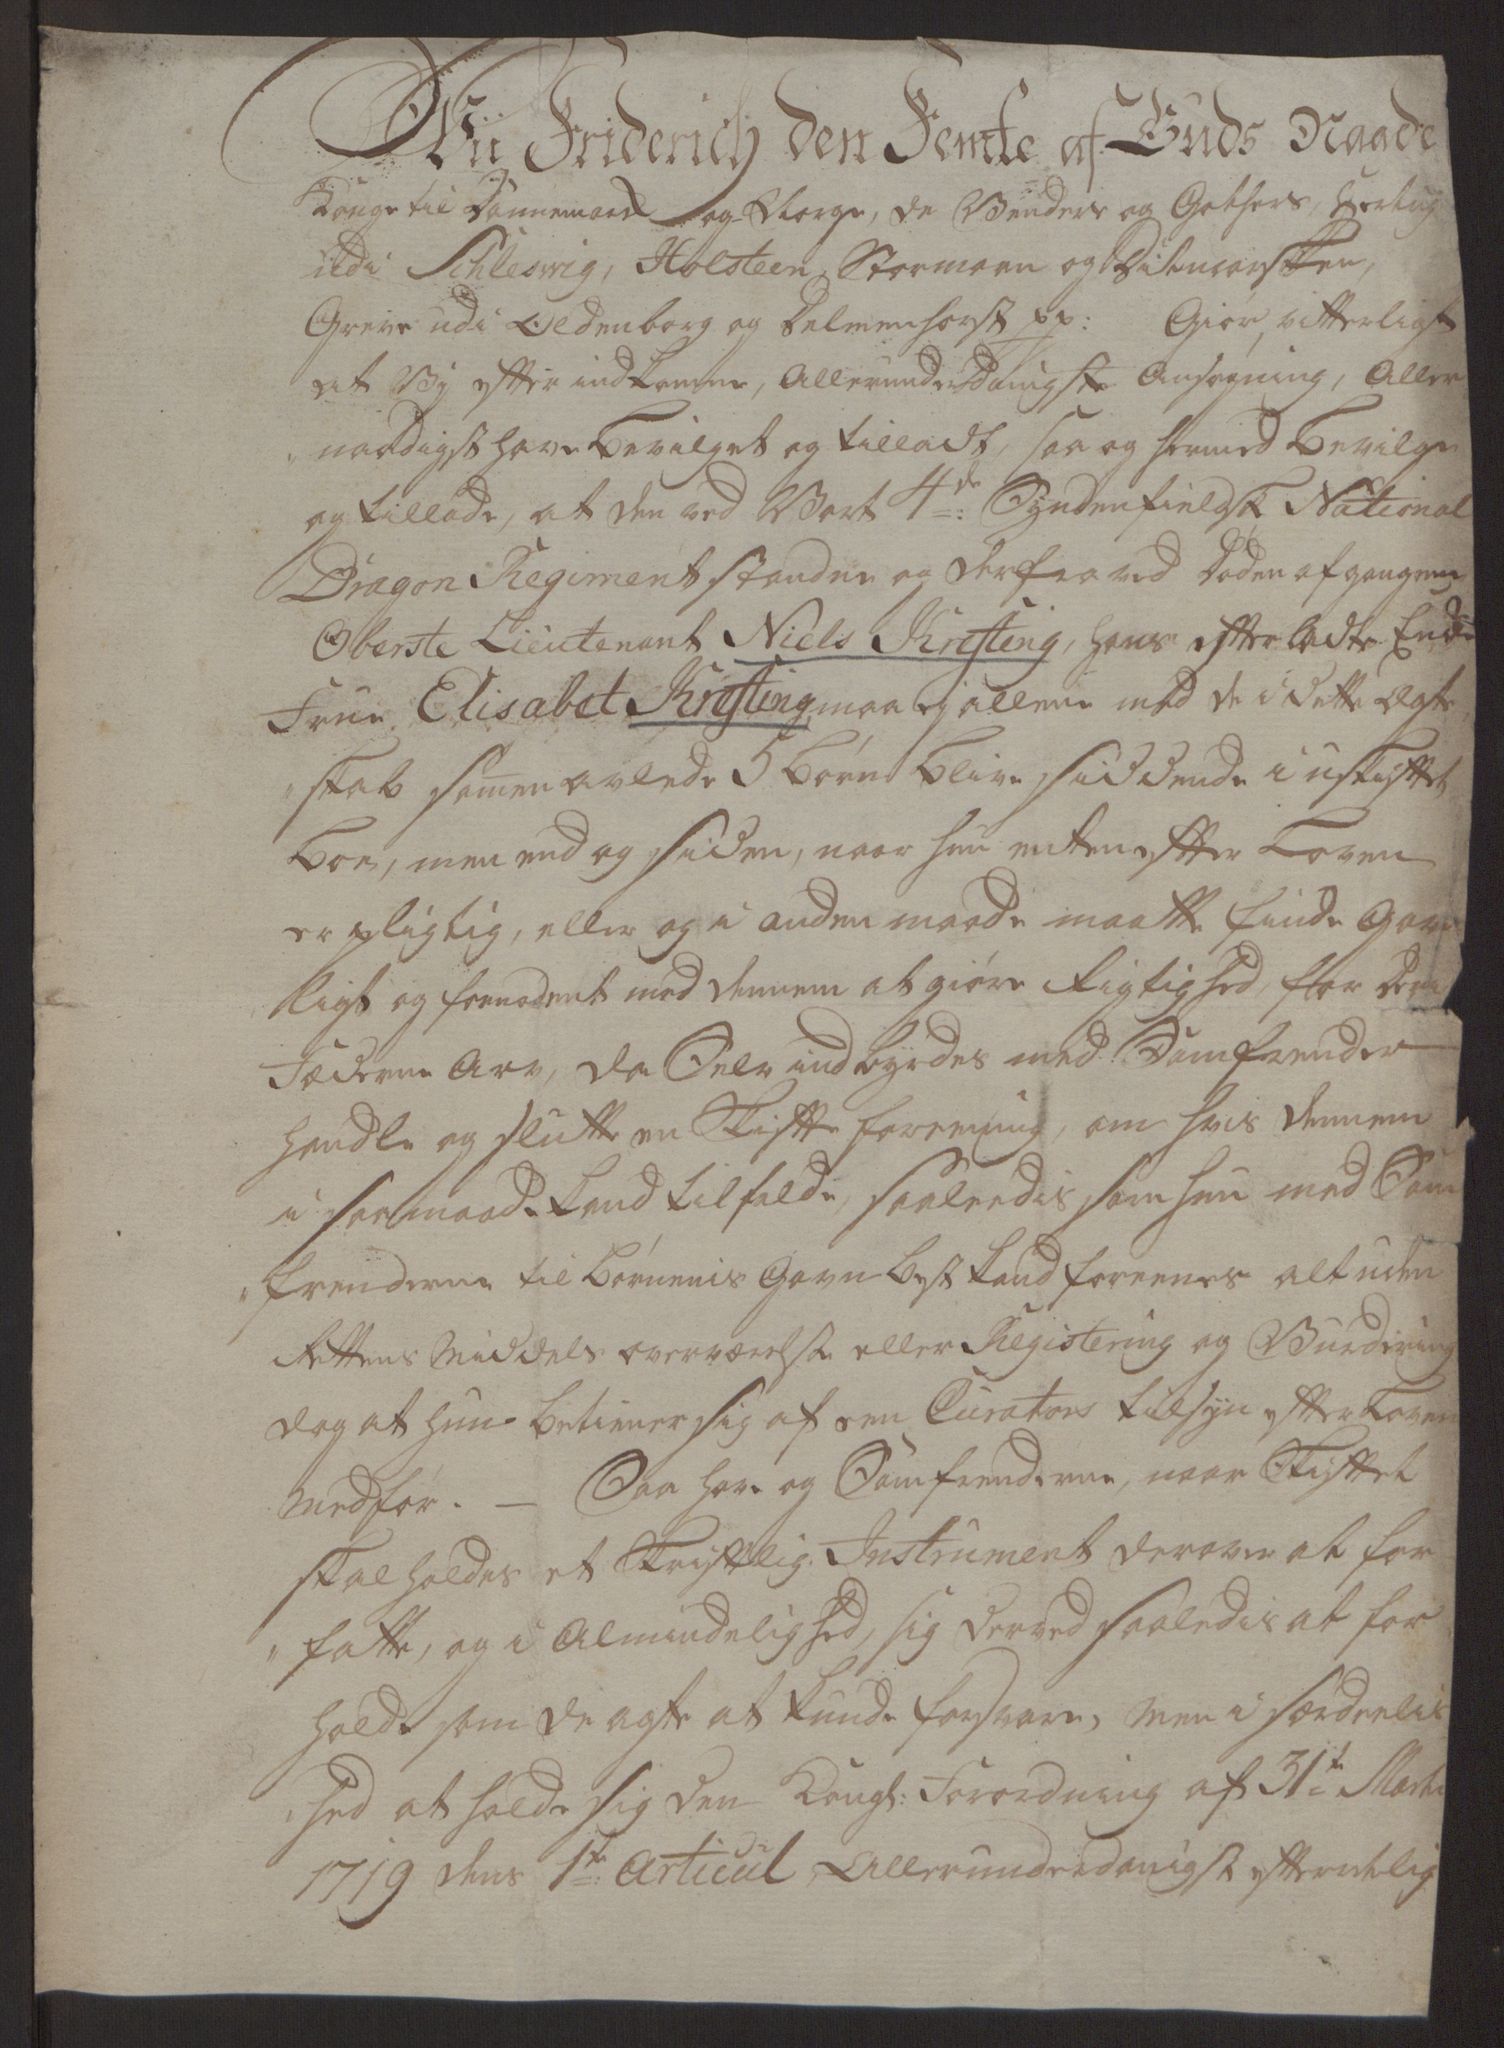 Wii Friderich den Femte af Guds Naade
Konge til Dannemark og Norge, de Venders og Gothers, Hertug
udi Schleswig, Holsteen, Stormarn og Ditmarsken,
Greve udi Oldenborg og Delmenhorst pp: Giør vitterligt
at Vy efter indkomne, Allerunderdanigste Ansøgning, Aller
naadigst have bevilget og tilladt, saa og hermed bevilge
og tillade, at den ved Vort 4de: Syndenfieldsk National
Dragon Regiment standne og derfra ved døden afgangne
Oberste Lieutenant Niels Kresting, hans efterladte Enke
Frue Elisabet Kresting, maa ej allene med de i dette Ægte
skab sammen avlede 5 børn blive siddende i uskiftet
boe, men end og siden, naar hun enten efter Loven
er pligtig, eller og i anden maade maatte finde Gavn
ligt og fornødent med dennem at giøre Rigtighed, for deris
Fæderne Arv, da Selv indbyrdes med Samfrender
handle og slutte en Skifte forening, om hvis dennem
i saa maade kand tilfalde, saaleedis som hun med Sam
frenderne til børnenis Gavn best kand foreenes alt uden
Rettens Middels overværelse eller Registering og Vurdering
dog at hun betiener sig af een Curators tilsyn efter Loven
medfør. — Saa have og Samfrenderne, naar Skiftet
skal holdes et Skriftlig Instrument derover at for
fatte, og i Almindelighed, sig derved saaledis at for
holde som de agte at kunde forsvare, men i særdeelis
hed at holde sig den Kongl: Forordning af 31te Martii
1719 dens 1te: Articul, Allerunderdanigst efterretlig